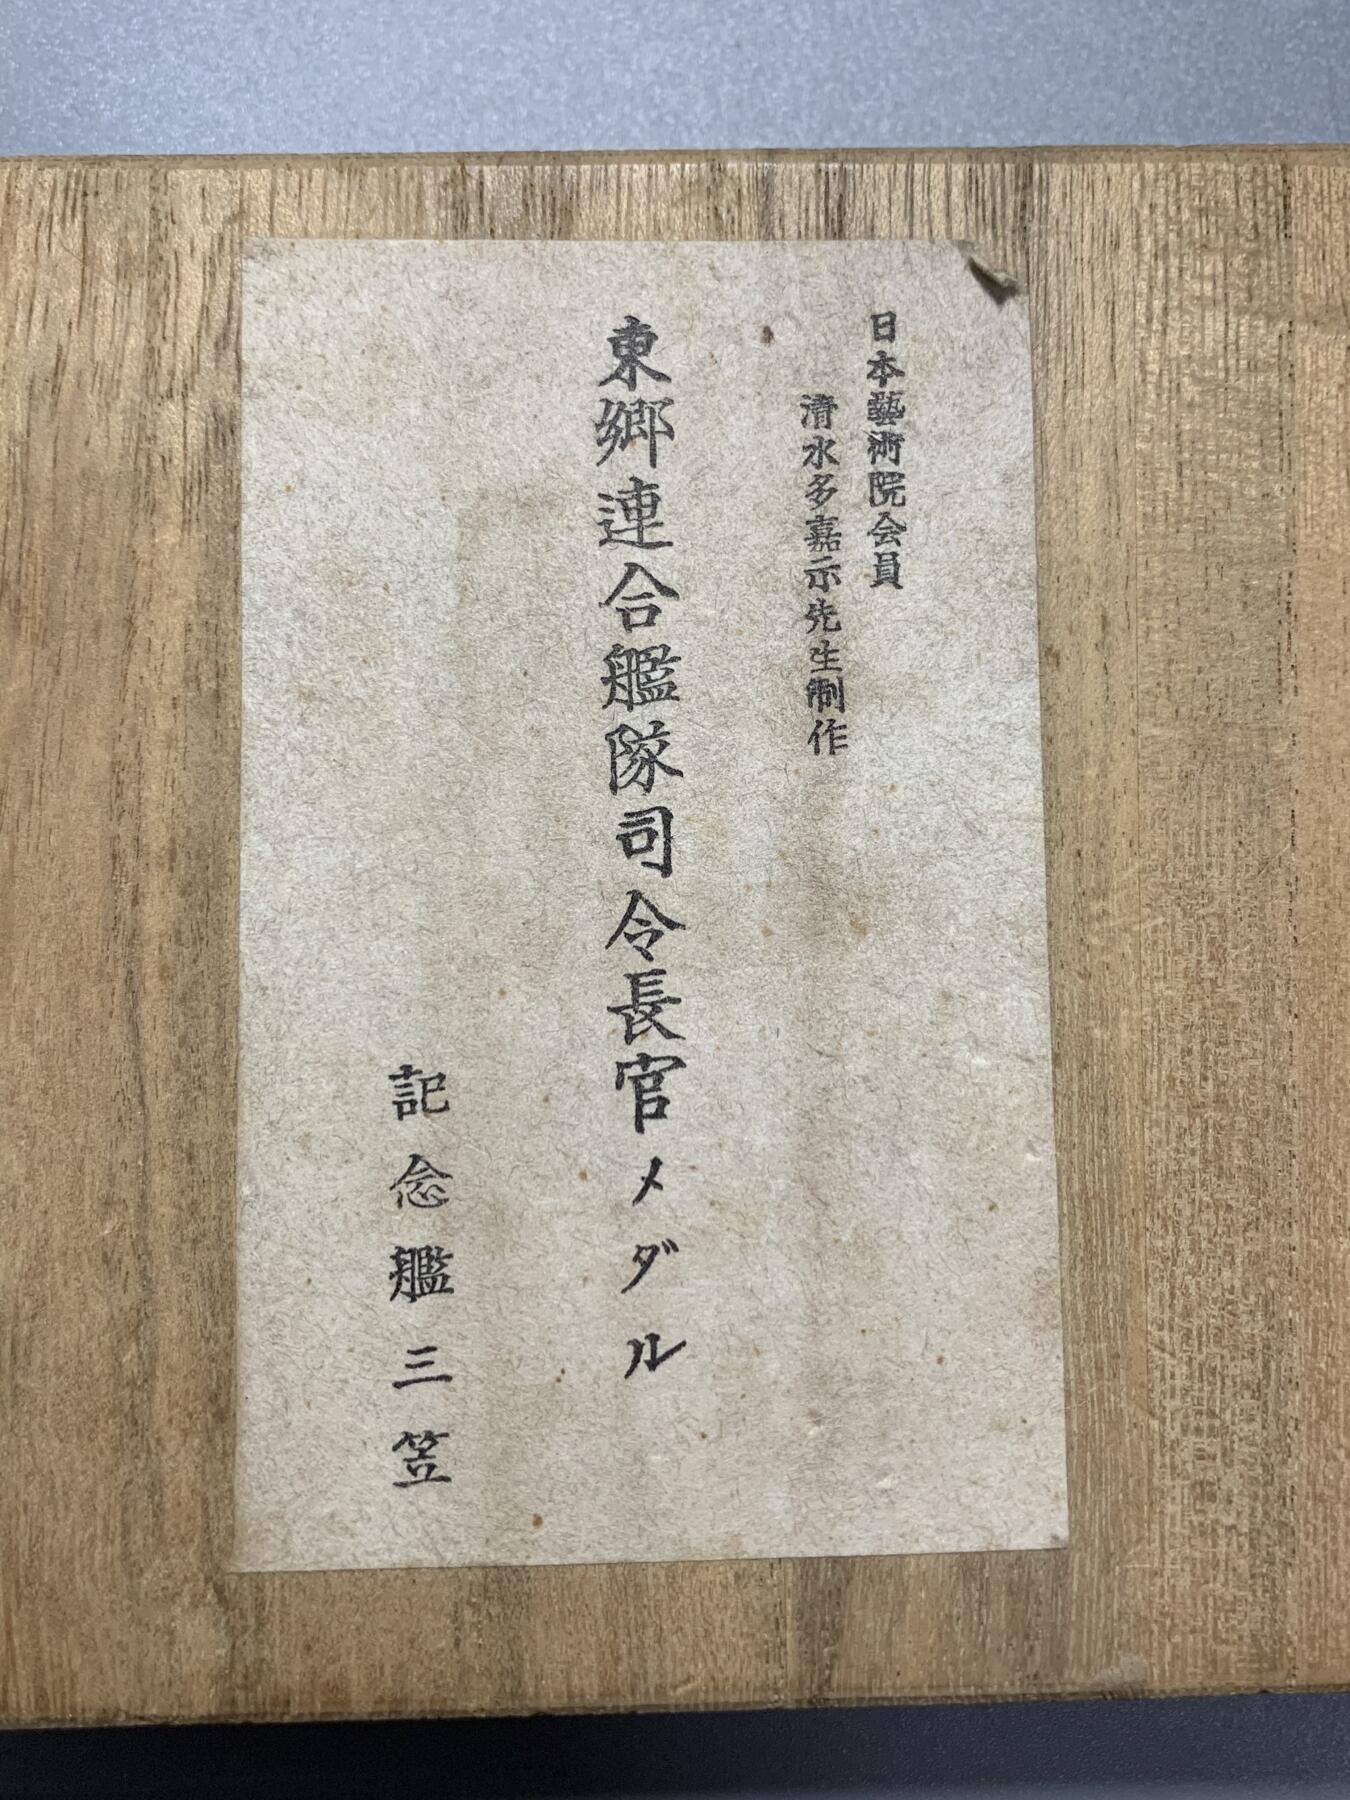 日本藝術院会員
清水多嘉示先生制作
東郷連合艦隊司令長官メダル
記念艦三笠